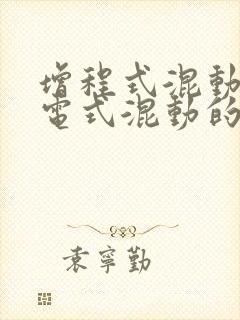 增程式混動
電式混動的
袁寧勤